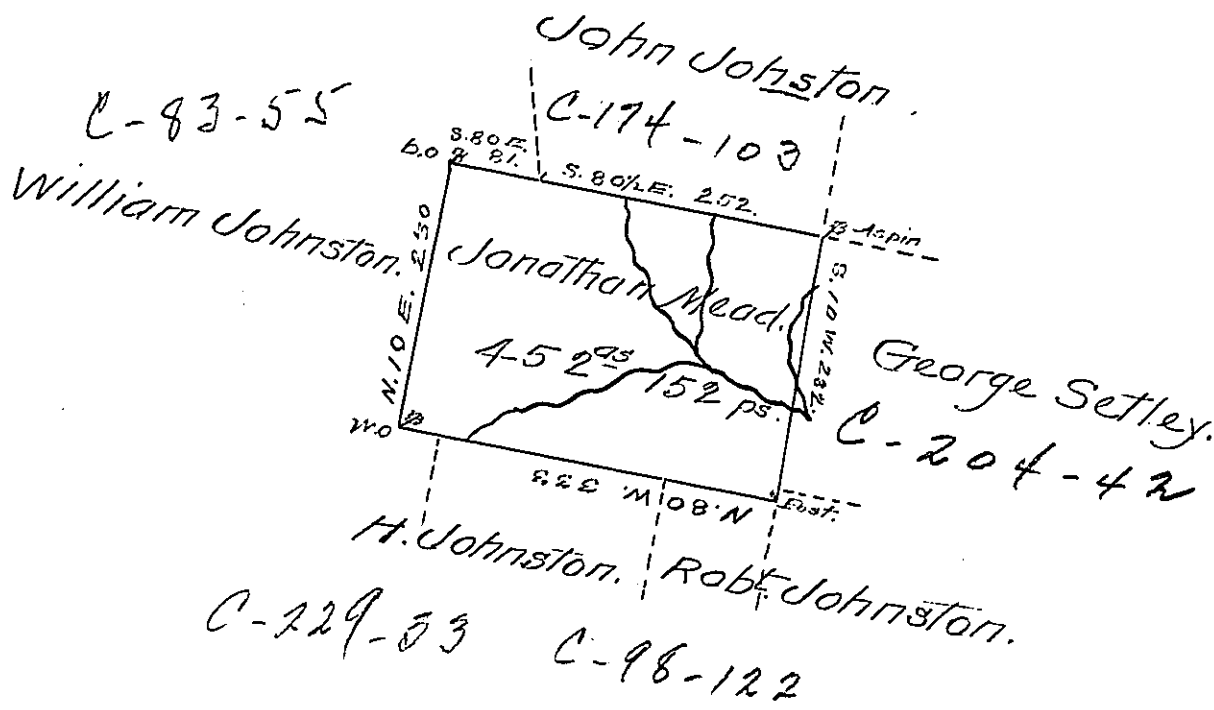 John Johnston.
C-174-103
C-83-55
William Johnston.
b.o
S. 80 E.
81.
S. 80½ E. 252.
Aspin
N. 10 E. 230
Jonathan Mead.
452 as 152 ps.
S. 10 W. 232.
George Setley.
C-204-42
W.O
N. 80 W. 333
Post.
H. Johnston.
Robt. Johnston.
C-229-33
C-98-122